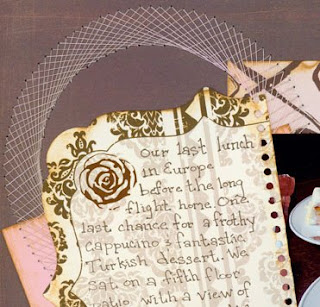 Our last lunch
in Europe
before the long
flight home. One
last chance for a frothy
cappucino & fantastic
Turkish dessert. We
sat on a fifth floor
patio with a view of